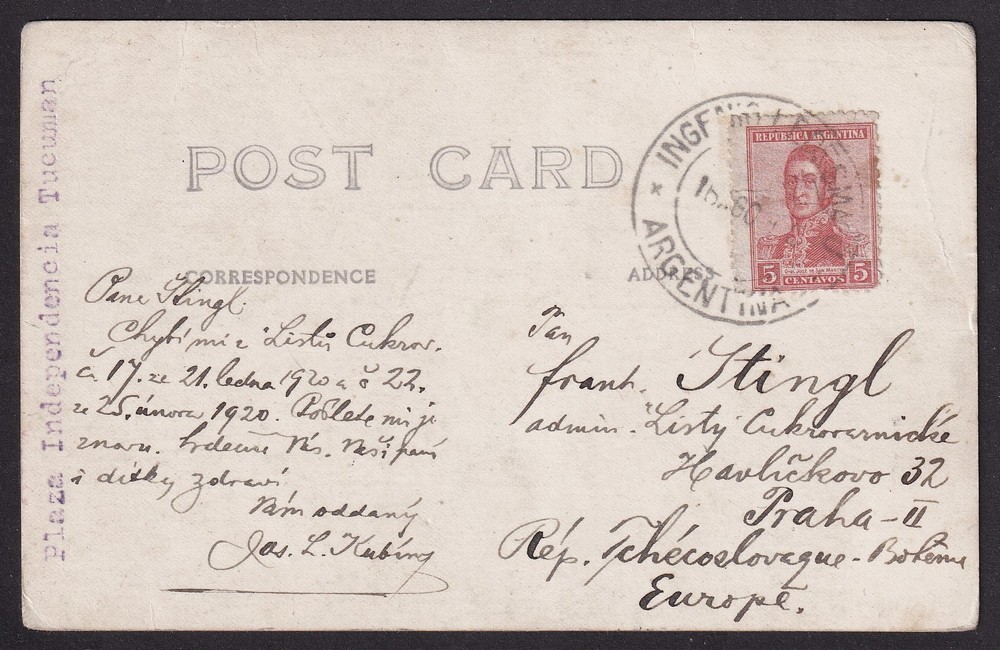 Plaza Independencia Tucuman
POST CARD
CORRESPONDENCE
ADDRESS
INGENIO
ARGENTINA
REPUBLICA ARGENTINA
5 CENTAVOS 5
Pane Stingl.
Chybí mi z "Listů Cukrov.
č. 17. ze 21. ledna 1920 a č 22.
ze 25. února 1920. Pošlete mi je
znovu. Srdečně Vás, Vaši paní
i dítky zdraví
Vám oddaný
Jos. L. Kubíny
Pan
Frant. Stingl
admin. "Listy Cukrovarnické
Havlíčkovo 32
Praha-II
Rép. Tchécoslovaque-Bohême
Europe.